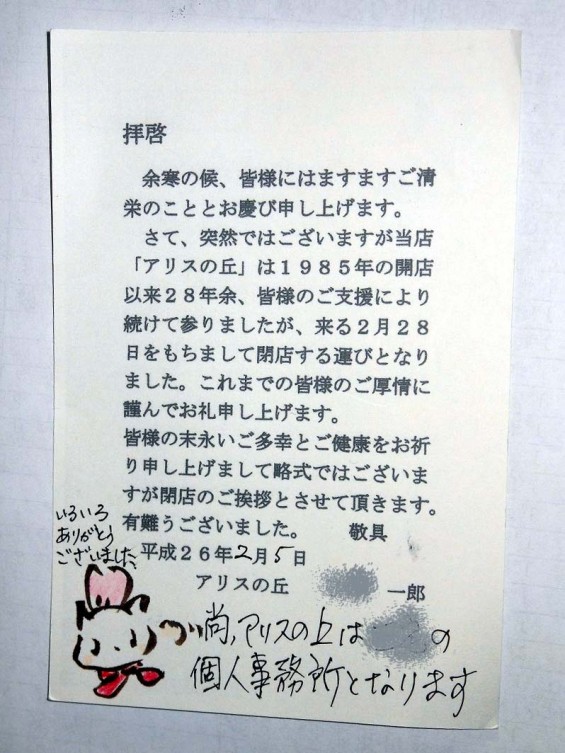 拝啓
余寒の候、皆様にはますますご清
栄のこととお慶び申し上げます。
さて、突然ではございますが当店
「アリスの丘」は1985年の開店
以来28年余、皆様のご支援により
続けて参りましたが、来る2月28
日をもちまして閉店する運びとなり
ました。これまでの皆様のご厚情に
謹んでお礼申し上げます。
皆様の末永いご多幸とご健康をお祈
り申し上げまして略式ではございま
すが閉店のご挨拶とさせて頂きます。
有難うございました。 敬具
平成26年2月5日
アリスの丘 一郎
いろいろ
ありがとう
ございました、
尚、アリスの丘は の
個人事務所となります